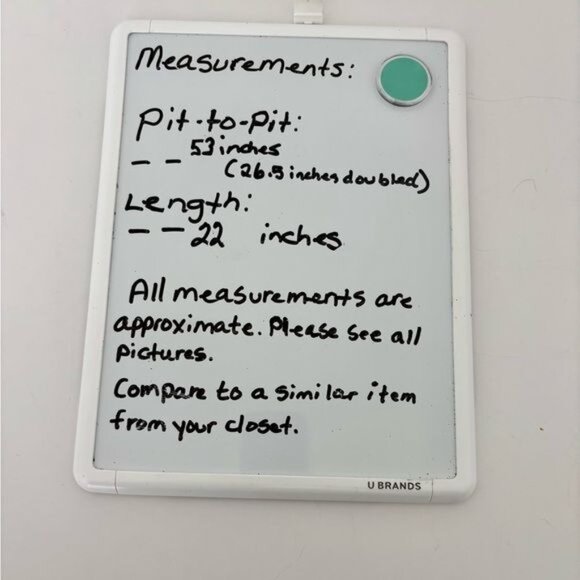 Measurements:
Pit-to-Pit:
— — 53 inches
(26.5 inches doubled)
Length:
— — 22 inches
All measurements are
approximate. Please see all
pictures.
Compare to a similar item
from your closet.
U BRANDS